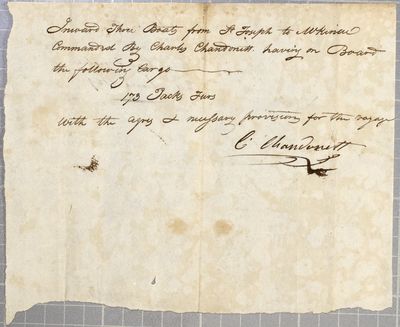 Inward Three Boats from St Joseph to McKinac
Commanded By Charles Chandonett having on Board
the following Cargo
173 Packs Furs
with the agres & necessary provision for the voyage
C Chandonett